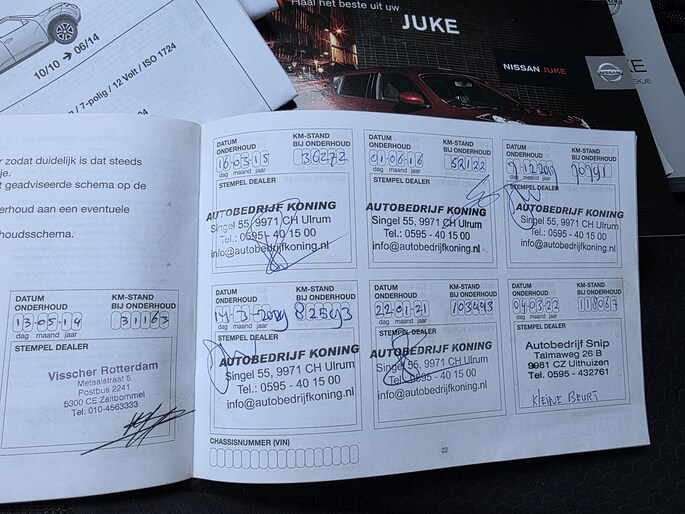 10/10 → 06/14
/ 7-polig / 12 Volt / ISO 1724
Haal het beste uit uw
JUKE
NISSAN JUKE
NISSAN
zodat duidelijk is dat steeds
je.
geadviseerde schema op de
erhoud aan een eventuele
houdsschema.
DATUM ONDERHOUD
KM-STAND BIJ ONDERHOUD
13-05-14
31163
dag maand jaar
STEMPEL DEALER
Visscher Rotterdam
Metaalstraat 5
Postbus 2241
5300 CE Zaltbommel
Tel: 010-4563333
DATUM ONDERHOUD
KM-STAND BIJ ONDERHOUD
16-03-15
36272
dag maand jaar
STEMPEL DEALER
AUTOBEDRIJF KONING
Singel 55, 9971 CH Ulrum
Tel.: 0595 - 40 15 00
info@autobedrijfkoning.nl
DATUM ONDERHOUD
KM-STAND BIJ ONDERHOUD
01-06-16
52122
dag maand jaar
STEMPEL DEALER
AUTOBEDRIJF KONING
Singel 55, 9971 CH Ulrum
Tel.: 0595 - 40 15 00
info@autobedrijfkoning.nl
DATUM ONDERHOUD
KM-STAND BIJ ONDERHOUD
70791
dag maand jaar
STEMPEL DEALER
AUTOBEDRIJF KONING
Singel 55, 9971 CH Ulrum
Tel.: 0595 - 40 15 00
info@autobedrijfkoning.nl
DATUM ONDERHOUD
KM-STAND BIJ ONDERHOUD
dag maand jaar
STEMPEL DEALER
AUTOBEDRIJF KONING
Singel 55, 9971 CH Ulrum
Tel.: 0595 - 40 15 00
info@autobedrijfkoning.nl
DATUM ONDERHOUD
KM-STAND BIJ ONDERHOUD
22-01-21
103493
dag maand jaar
STEMPEL DEALER
AUTOBEDRIJF KONING
Singel 55, 9971 CH Ulrum
Tel.: 0595 - 40 15 00
info@autobedrijfkoning.nl
DATUM ONDERHOUD
KM-STAND BIJ ONDERHOUD
04-03-22
118067
dag maand jaar
STEMPEL DEALER
Autobedrijf Snip
Talmaweg 26 B
9981 CZ Uithuizen
Tel. 0595 - 432761
KLEINE BEURT
CHASSISNUMMER (VIN)
22